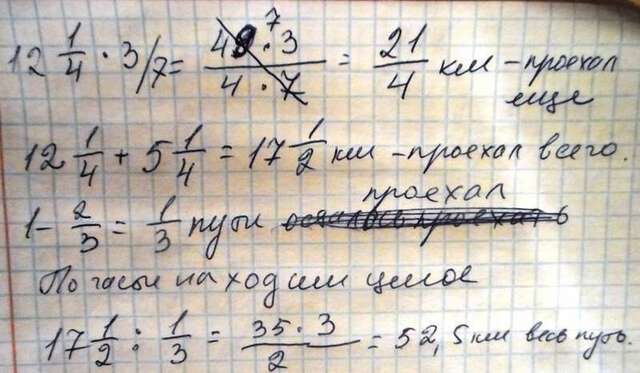 12 1/4 · 3/7 = 49 · 3 / 4 · 7 = 21/4 км - проехал
7
еще
12 1/4 + 5 1/4 = 17 1/2 км - проехал всего.
проехал
1 - 2/3 = 1/3 пути осталось проехать
По части находим целое
17 1/2 : 1/3 = 35 · 3 / 2 = 52,5 км весь путь.